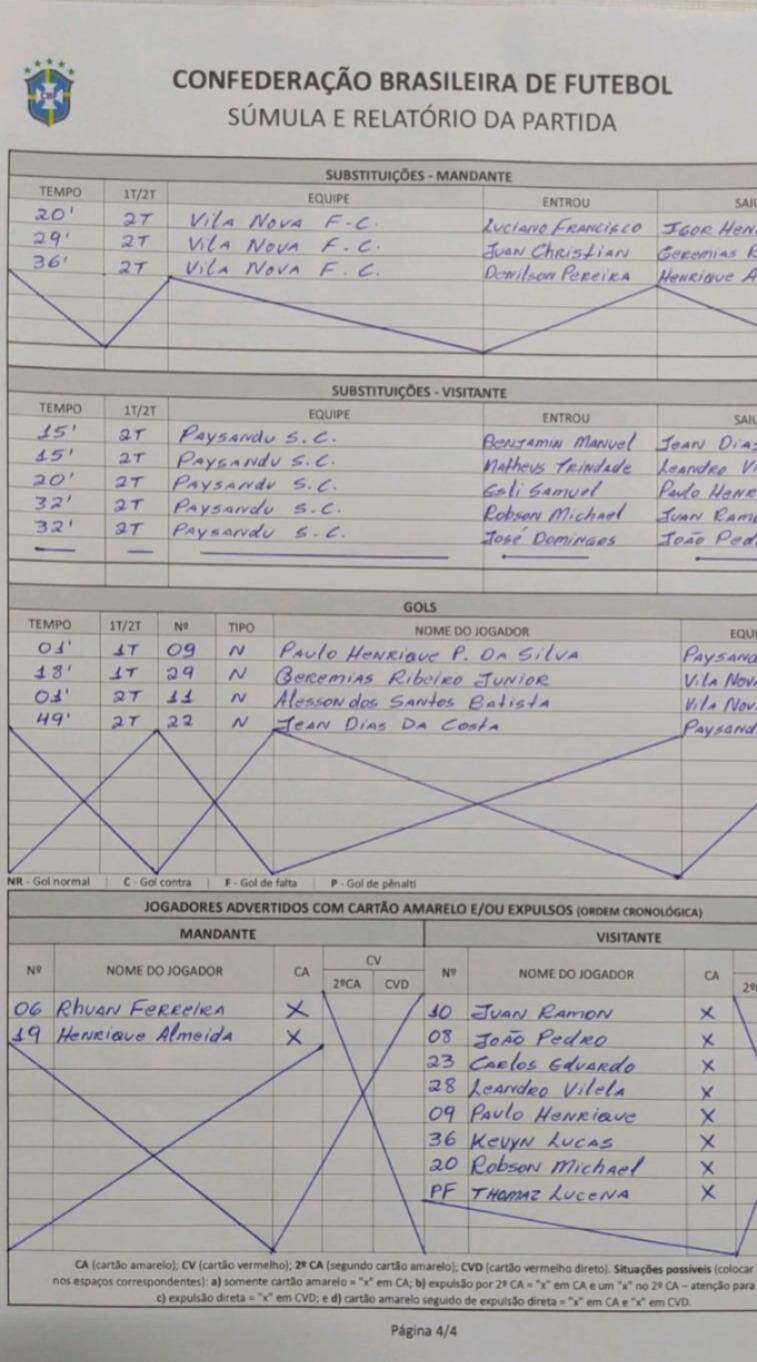 CONFEDERAÇÃO BRASILEIRA DE FUTEBOL
SÚMULA E RELATÓRIO DA PARTIDA
SUBSTITUIÇÕES - MANDANTE
TEMPO 1T/2T EQUIPE ENTROU SAIU
20' 2T Vila Nova F.C. Luciano Francisco Igor Hen
29' 2T Vila Nova F.C. Juan Christian Geremias R
36' 2T Vila Nova F.C. Denilson Pereira Henrique A
SUBSTITUIÇÕES - VISITANTE
TEMPO 1T/2T EQUIPE ENTROU SAIU
15' 2T Paysandu S.C. Benjamin Manuel Jean Dias
15' 2T Paysandu S.C. Matheus Trindade Leandro Vi
20' 2T Paysandu S.C. Esli Samuel Paulo Henr
32' 2T Paysandu S.C. Robson Michael Juan Ramo
32' 2T Paysandu S.C. José Domingos João Ped
GOLS
TEMPO 1T/2T Nº TIPO NOME DO JOGADOR EQUI
01' 1T 09 N Paulo Henrique P. Da Silva Paysand
18' 1T 29 N Geremias Ribeiro Junior Vila Nov
01' 2T 11 N Alesson dos Santos Batista Vila Nov
49' 2T 22 N Jean Dias Da Costa Paysand
NR - Gol normal | C - Gol contra | F - Gol de falta | P - Gol de pênalti
JOGADORES ADVERTIDOS COM CARTÃO AMARELO E/OU EXPULSOS (ORDEM CRONOLÓGICA)
MANDANTE VISITANTE
Nº NOME DO JOGADOR CA CV 2ºCA CVD Nº NOME DO JOGADOR CA 2º
06 Rhuan Ferreira X 10 Juan Ramon X
19 Henrique Almeida X 08 João Pedro X
23 Carlos Eduardo X
28 Leandro Vilela X
09 Paulo Henrique X
36 Kevyn Lucas X
20 Robson Michael X
PF Thomaz Lucena X
CA (cartão amarelo); CV (cartão vermelho); 2º CA (segundo cartão amarelo); CVD (cartão vermelho direto). Situações possíveis (colocar
nos espaços correspondentes): a) somente cartão amarelo = "x" em CA; b) expulsão por 2º CA = "x" em CA e um "x" no 2º CA – atenção para
c) expulsão direta = "x" em CVD; e d) cartão amarelo seguido de expulsão direta = "x" em CA e "x" em CVD.
Página 4/4